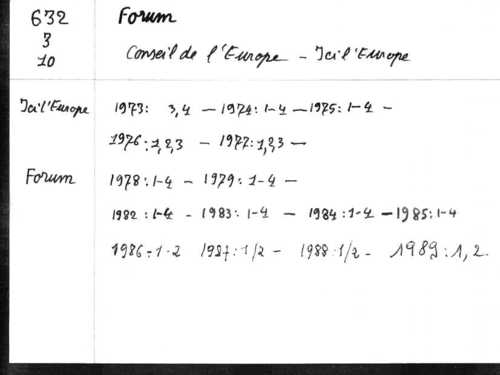 632 Forum
3
10 Conseil de l'Europe - Ici l'Europe
Ici l'Europe 1973: 3,4 - 1974: 1-4 - 1975: 1-4 -
1976: 1,2,3 - 1977: 1,2,3 -
Forum 1978: 1-4 - 1979: 1-4 -
1982: 1-4 - 1983: 1-4 - 1984: 1-4 - 1985: 1-4
1986: 1-2 1987: 1/2 - 1988: 1/2 - 1989: 1, 2.